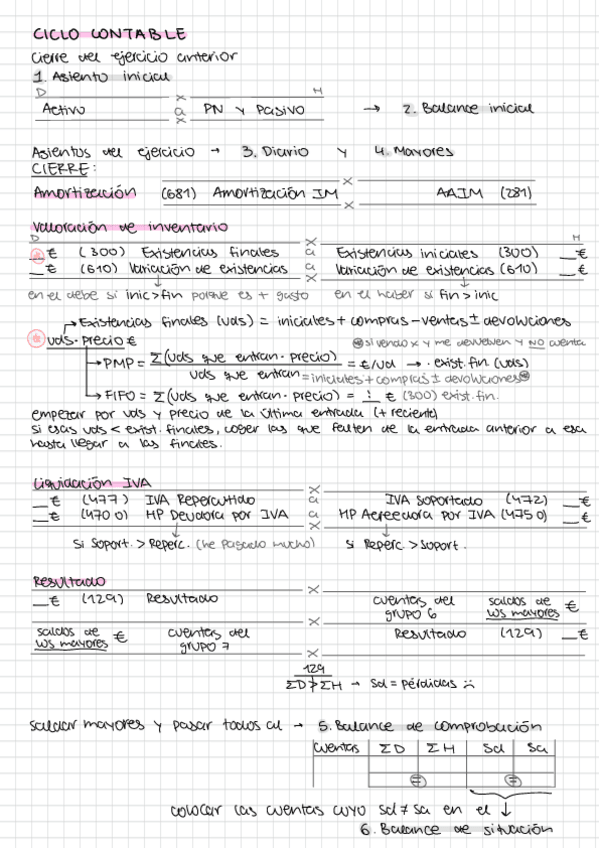 CICLO CONTABLE
Cierre del ejercicio anterior
1. Asiento inicial
D x H
Activo a PN y Pasivo → 2. Balance inicial
x
Asientos del ejercicio → 3. Diario y 4. Mayores
CIERRE:
x
Amortización (681) Amortización IM AAIM (281)
x
Valoración de inventario
D x H
__€ (300) Existencias finales a Existencias iniciales (300) __€
__€ (610) Variación de existencias a Variación de existencias (610) __€
x
en el debe si inic>fin porque es + gasto en el haber si fin > inic
Existencias finales (uds) = iniciales + compras - ventas ± devoluciones
uds·precio € si vendo x y me devuelven y NO cuenta
PMP = Σ(uds que entran · precio) = €/ud → · exist. fin. (uds)
uds que entran = iniciales + compras ± devoluciones
FIFO = Σ(uds que entran · precio) = € (300) exist. fin.
empezar por uds y precio de la última entrada (+ reciente)
si esas uds < exist. finales, coger las que falten de la entrada anterior a esa
hasta llegar a las finales.
Liquidación IVA
x
__€ (477) IVA Repercutido IVA Soportado (472) __€
__€ (4700) HP Deudora por IVA a HP Acreedora por IVA (4750) __€
x
si Soport. > Reperc. (he pagado mucho) si Reperc. > Soport.
Resultado
x
__€ (129) Resultado cuentas del grupo 6 saldos de los mayores €
x
saldos de los mayores € cuentas del grupo 7 Resultado (129) __€
x
129
ΣD > ΣH → Sd = pérdidas :(
saldar mayores y pasar todos al → 5. Balance de comprobación
Cuentas ΣD ΣH Sd Sa
= =
colocar las cuentas cuyo sd ≠ sa en el ↓
6. Balance de situación